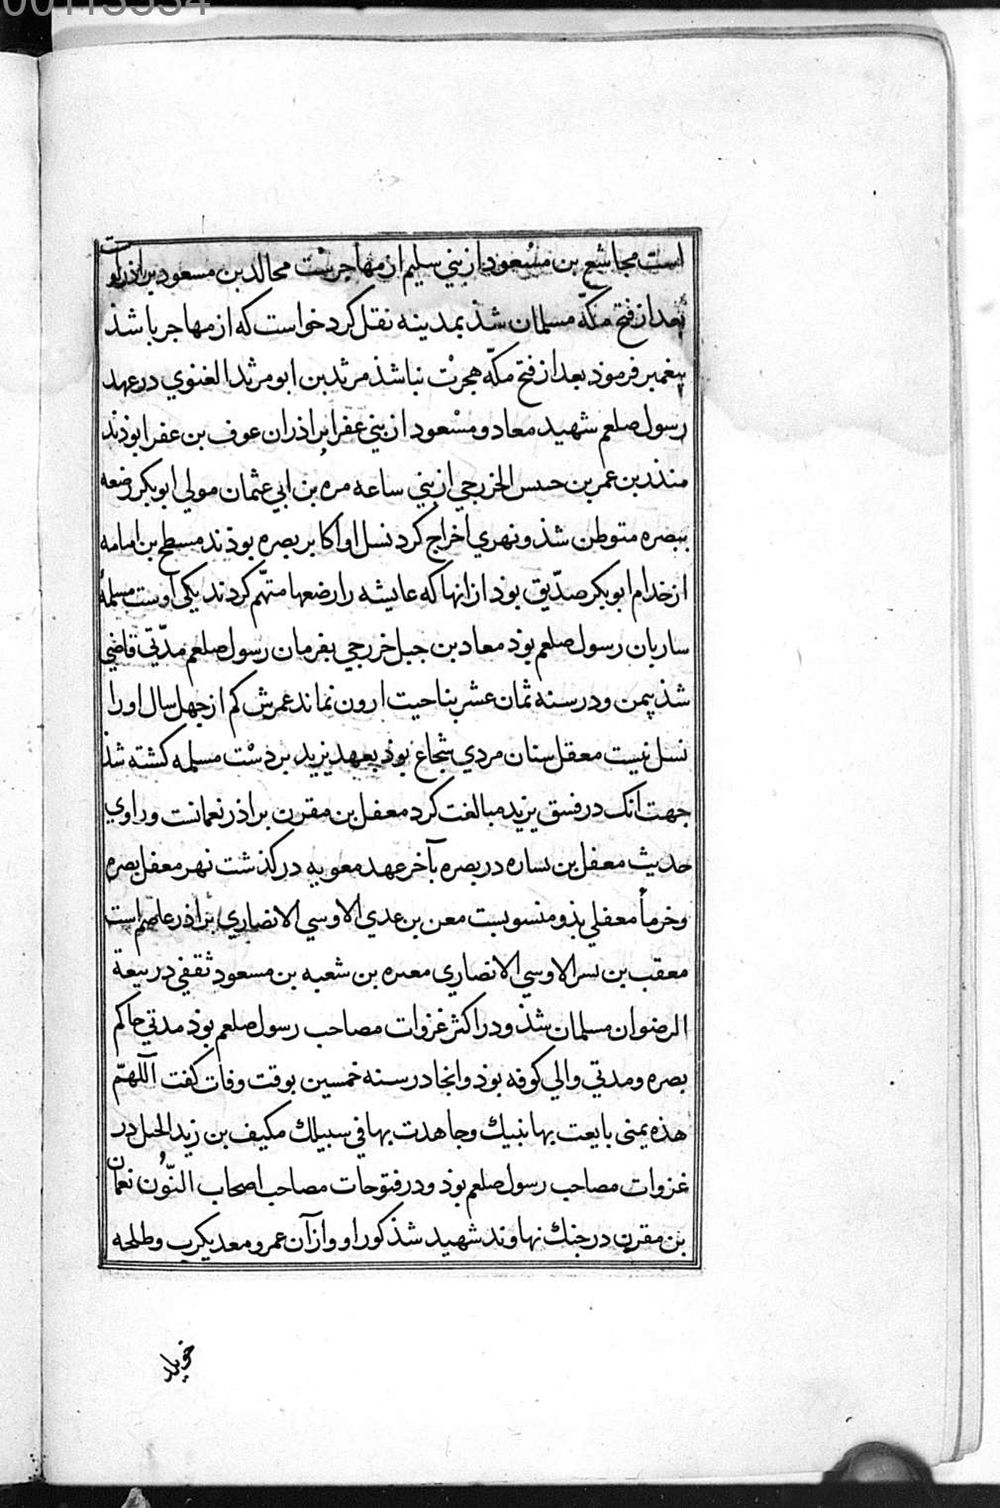 00113534
است مجاشع بن مسعود از بني سليم از مهاجرست مجالد بن مسعود برادر اوست
بعد از فتح مكّه مسلمان شذ بمدينه نقل كرد خواست كه از مهاجر باشذ
پيغمبر فرموذ بعد از فتح مكّه هجرت نباشذ مرثد بن ابو مرثد الغنوي در عهد
رسول صلعم شهيد معاد و مسعود از بني عفرا برادران عوف بن عفرا بوذند
منذر بن عمر بن حىس الخزرجي از بني ساعه مره بن ابي عثمان مولي ابو بكر رضعه
ببصره متوطن شذ و نهري اخراج كرد نسل او اكابر بصره بوذند مسطح بن امامه
از خدام ابو بكر صدّيق بوذ از انها كه عايشه را رضعها متّهم كردند يكي اوست مسلمة
ساربان رسول صلعم بوذ معاد بن جبل خزرجي بفرمان رسول صلعم مدّتي قاضي
شذ بيمن و در سنه ثمان عشر بناحيت اردن نماند عمرش كم از جهل سال او را
نسل نيست معقل سنان مردي شجاع بوذ بعهد يزيد بر دست مسلمه كشته شذ
جهت آنك در فسق يزيد مبالغت كرد معقل بن مقرن براذر نعمانست و راوي
حديث معقل بن يساره در بصره بآخر عهد معويه در كذشت نهر معقل بصره
و خرمأ معقلي بذو منسوبست معن بن عدي الاوسي الانصاري براذر عاصم است
معقب بن ىسر الاوسي الانصاري معىره بن شعبه بن مسعود ثقفي در بيعة
الرضوان مسلمان شذ و در اكثر غزوات مصاحب رسول صلعم بوذ مدتي حاكم
بصره و مدتي والي كوفه بوذ و آنجا در سنه خمسين بوقت وفات كفت اللّهمّ
هذه يمنى بايعت بها نبيك و جاهدت بها في سبيلك مكيف بن زيد الخيل در
غزوات مصاحب رسول صلعم بوذ و در فتوحات مصاحب اصحاب النّون نعمان
بن مقرن در جنك نهاوند شهيد شذ كور او و از آن عمرو معديكرب و طلحه
خويلد